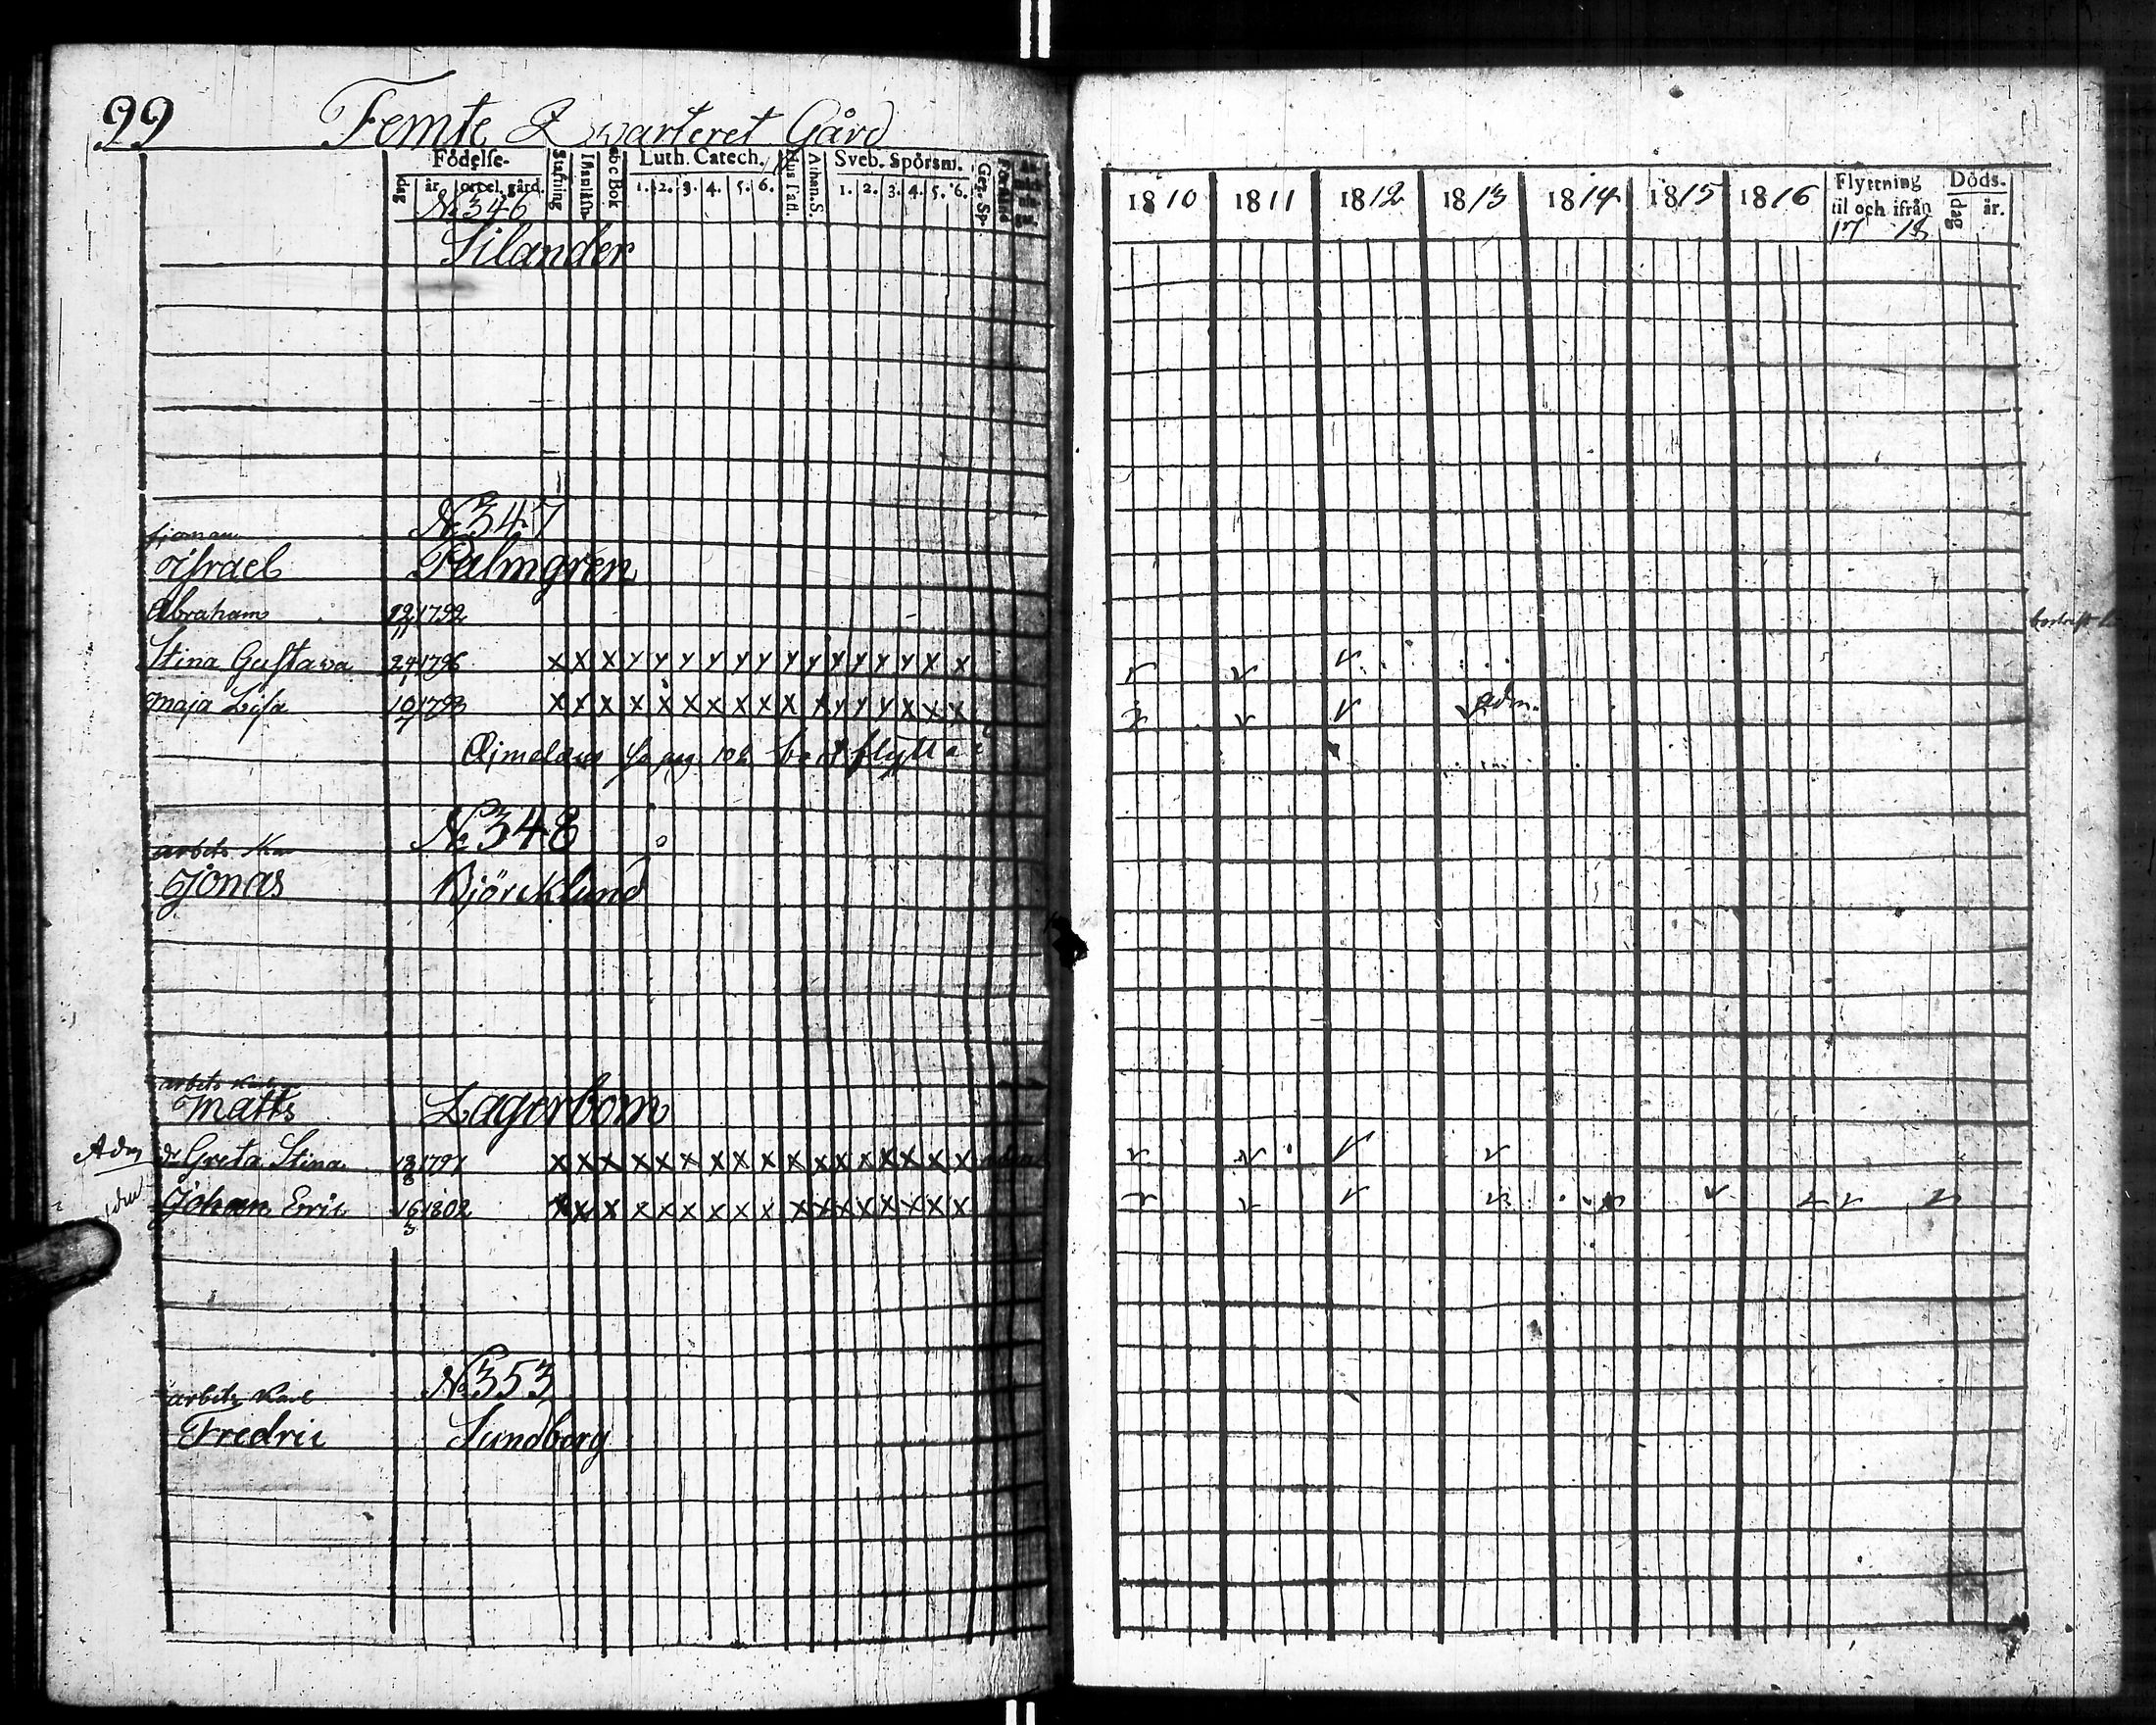 99 Femte Qwarteret Gård
Födelse- Stafning Innanläsn. abc Bok Luth. Catech. Hus Tafl. Athan. S. Sveb. Spörsm. Gez. Sp.
dag år ort el. gård. 1. 2. 3. 4. 5. 6. 1. 2. 3. 4. 5. 6.
1810 1811 1812 1813 1814 1815 1816 Flyttning til och ifrån 17 18 Döds- dag år.
No 346
Silander
No 347
Israel Palmgren
Abraham 12/11 1792
Stina Gustava 1796 x x x y y y y y y y y y y y y x x v v v
Maja Lisa 10 1793 x x x x x x x x x x x y y y x x x v v v adm.
pag. 102 bortflytt
No 348
arbets Kar
Jonas Björcklund
arbets Karl
Matts Lagerbom
Adm dr Greta Stina 18/8 1797 x x x x x x x x x x x x x x x x x v v v v
Johan Eric 16/3 1802 x x x x x x x x x x x x x x x x x v v v v v v v v
No 353
arbets Karl
Fredric Sundborg